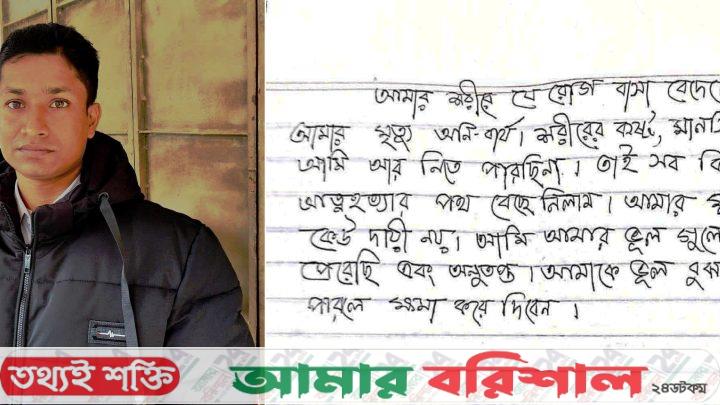 আমার শরীরে যে রোগ বাসা বেদেছে
আমার মৃত্যু অনিবার্য। শরীরের কষ্ট, মানসি
আমি আর নিতে পারছিনা। তাই সব কি
আত্মহত্যার পথ বেছে নিলাম। আমার মৃ
কেউ দায়ী নয়। আমি আমার ভুল গুলো
পেরেছি এবং অনুতপ্ত। আমাকে ভুল বুঝ
পারলে ক্ষমা করে দিবেন।
তথ্যই শক্তি আমার বরিশাল ২৪ডটকম